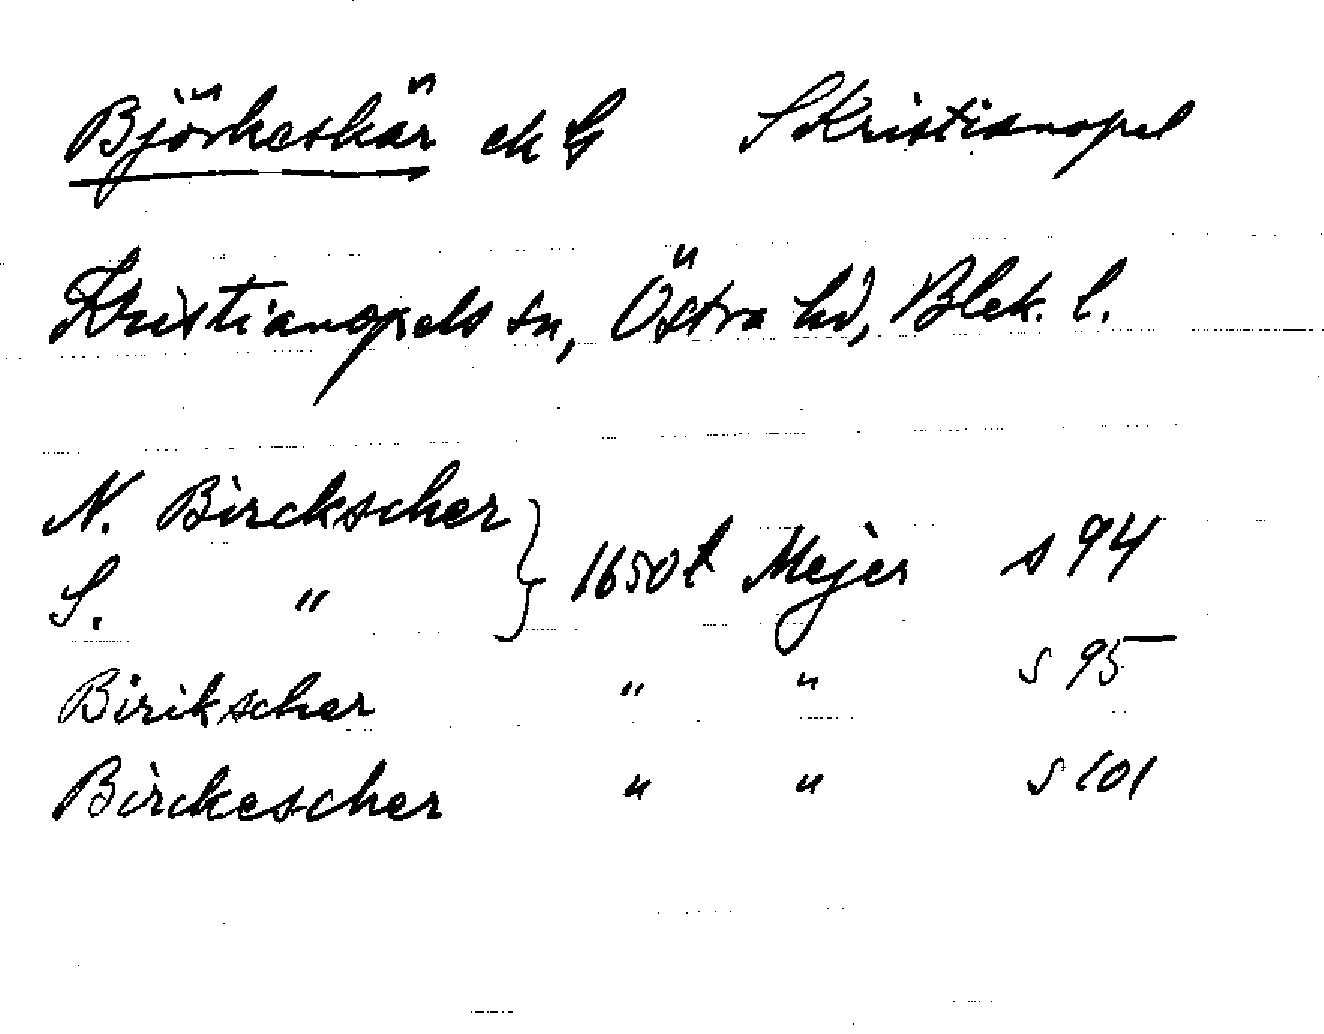 Björkeskär ek S Kristianopel
Kristianopels sn, Östra hd, Blek. l.
N. Birckscher } 1650t Mejer s 94
S. "
Birikscher " " s 95
Birckescher " " s 101